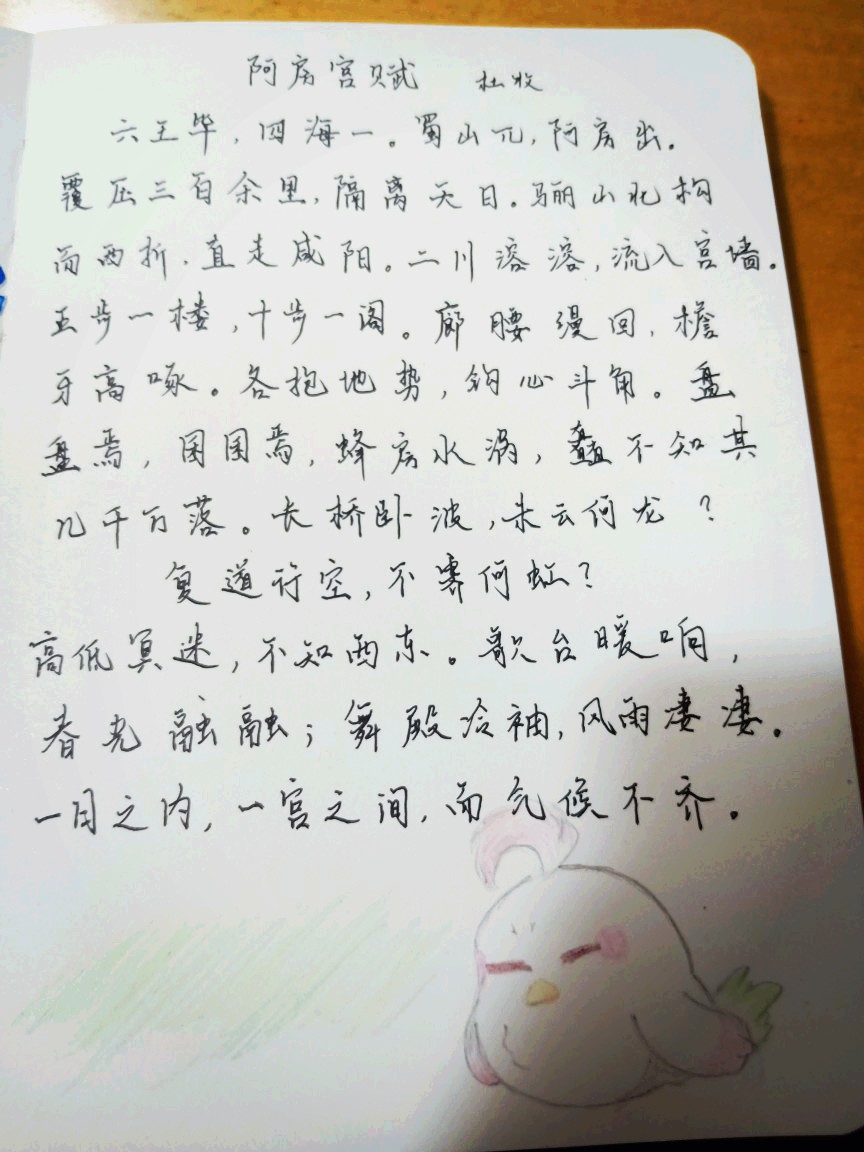 阿房宫赋 杜牧
六王毕,四海一。蜀山兀,阿房出。
覆压三百余里,隔离天日。骊山北构
而西折,直走咸阳。二川溶溶,流入宫墙。
五步一楼,十步一阁。廊腰缦回,檐
牙高啄。各抱地势,钩心斗角。盘
盘焉,囷囷焉,蜂房水涡,矗不知其
几千万落。长桥卧波,未云何龙?
复道行空,不霁何虹?
高低冥迷,不知西东。歌台暖响,
春光融融;舞殿冷袖,风雨凄凄。
一日之内,一宫之间,而气候不齐。